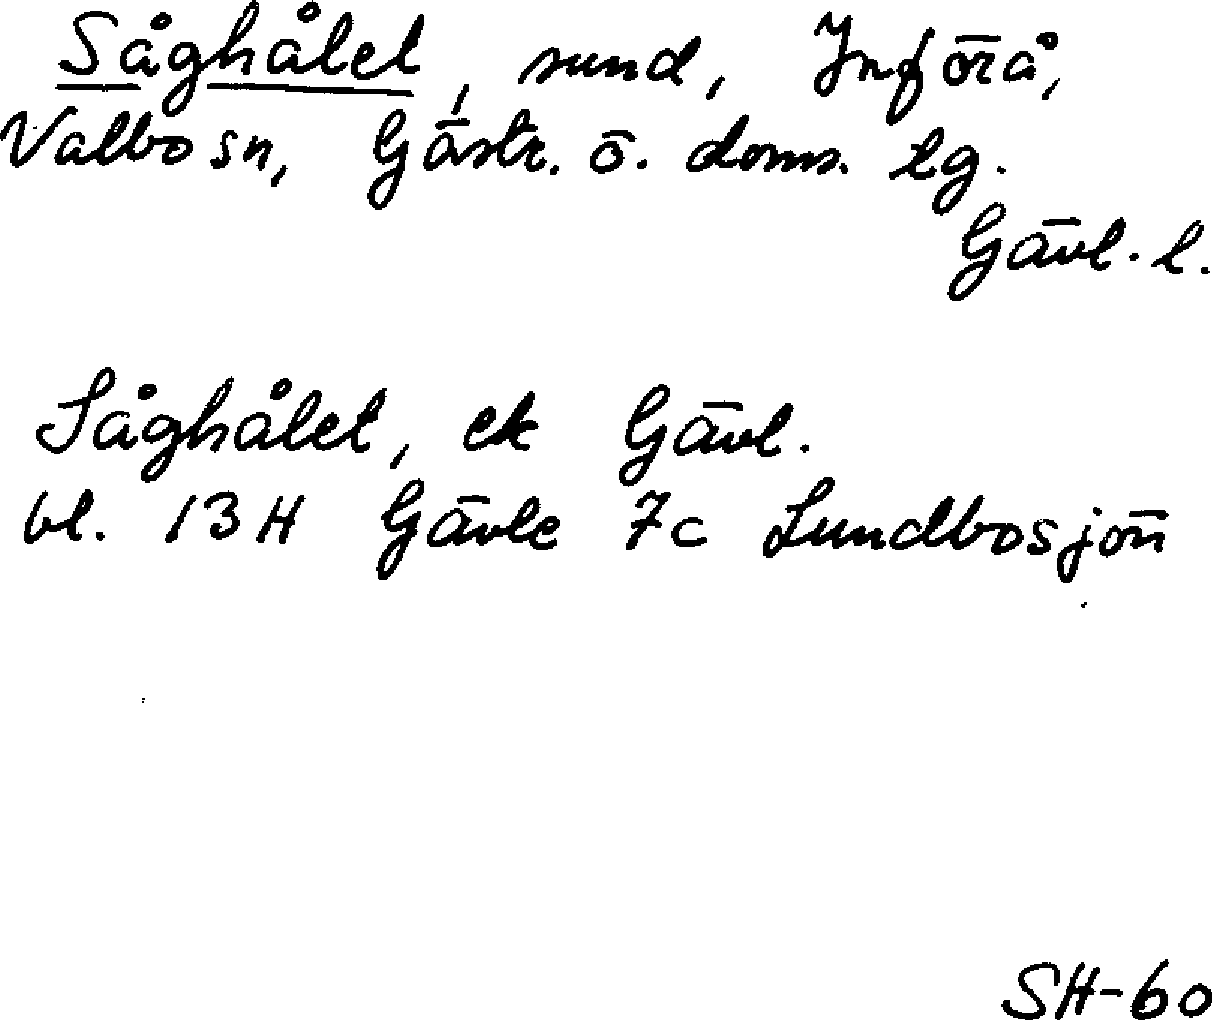 Såghålet, sund, Införå,
Valbo sn, Gästr. ö. doms. lg.
Gävl. l.
Såghålet, ek Gävl.
bl. 13H Gävle 7c Lundbosjön
SH-60